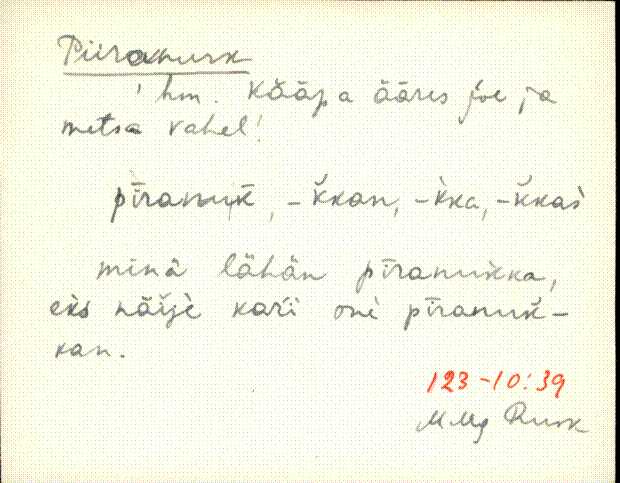 Piiranurk
hm. Kääpa ääres joe ja
metsa vahel!
pīranuk̄, -k̆kan, -k̀ka, -k̆kaš
minä lähän pīranuk̀ka,
eks näije kari oñi pīranuk̆-
kan.
123-10:39
M Mg Rusk